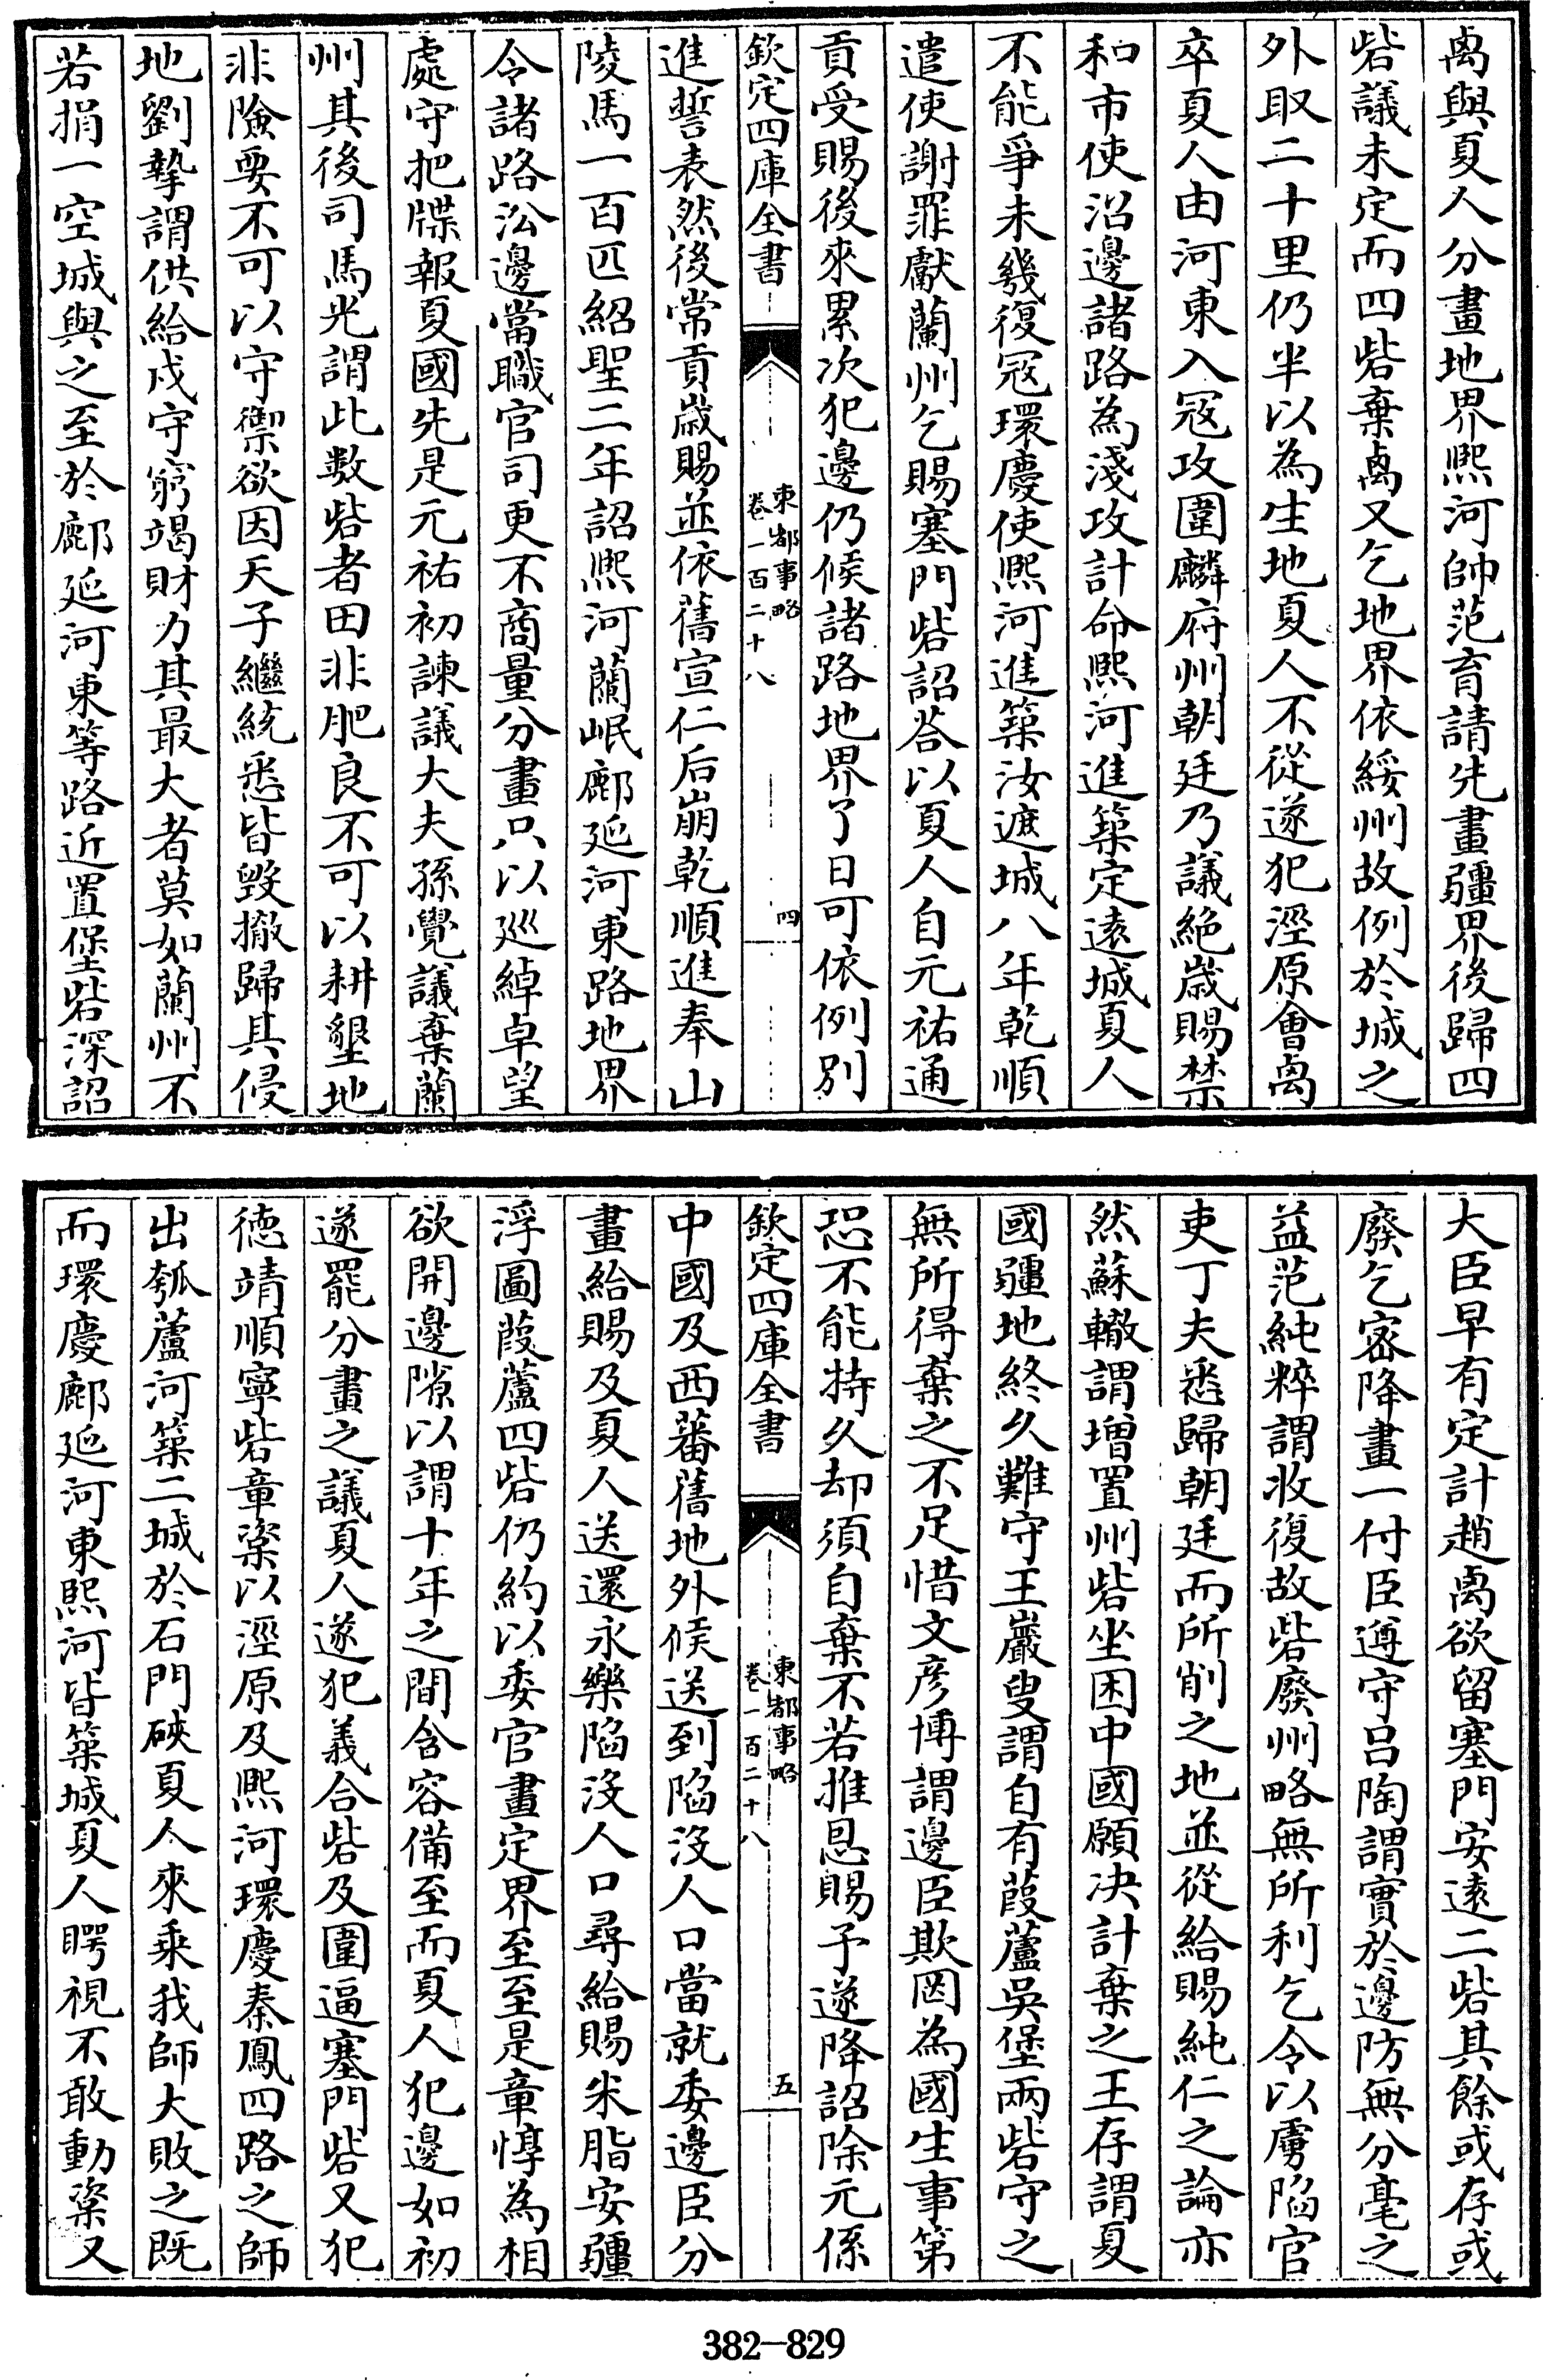 卨與夏人分畫地界熙河帥范育請先畫疆界後歸四
砦議未定而四砦棄卨又乞地界依綏州故例於城之
外取二十里仍半以為生地夏人不從遂犯涇原會卨
卒夏人由河東入冦攻圍麟府州朝廷乃議絶歲賜禁
和市使沿邊諸路為淺攻計命熙河進築定遠城夏人
不能爭未幾復冦環慶使熙河進築汝遮城八年乾順
遣使謝罪獻蘭州乞賜塞門砦詔荅以夏人自元祐通
貢受賜後來累次犯邊仍候諸路地界了日可依例別
欽定四庫全書
東都事略
卷一百二十八
四
進誓表然後常貢歲賜並依舊宣仁后崩乾順進奉山
陵馬一百匹紹聖二年詔熙河蘭岷鄜延河東路地界
令諸路㳂邊當職官司更不商量分畫只以巡綽卓望
處守把牒報夏國先是元祐初諫議大夫孫覺議棄蘭
州其後司馬光謂此數砦者田非肥良不可以耕墾地
非險要不可以守禦欲因天子繼統悉皆毀撤歸其侵
地劉摯謂供給戍守窮竭財力其最大者莫如蘭州不
若捐一空城與之至於鄜延河東等路近置堡砦深詔
大臣早有定計趙卨欲留塞門安遠二砦其餘或存或
廢乞宻降畫一付臣遵守呂陶謂實於邊防無分毫之
益范純粹謂收復故砦廢州略無所利乞令以虜陷官
吏丁夫悉歸朝廷而所削之地並從給賜純仁之論亦
然蘇轍謂增置州砦坐困中國願决計棄之王存謂夏
國疆地終久難守王巖叟謂自有葭蘆吳堡兩砦守之
無所得棄之不足惜文彦博謂邊臣欺罔為國生事第
恐不能持久却須自棄不若推恩賜予遂降詔除元係
欽定四庫全書
東都事略
卷一百二十八
五
中國及西蕃舊地外候送到陷沒人口當就委邊臣分
畫給賜及夏人送還永樂陷沒人口尋給賜米脂安疆
浮圖葭蘆四砦仍約以委官畫定界至至是章惇為相
欲開邊隙以謂十年之間含容備至而夏人犯邊如初
遂罷分畫之議夏人遂犯義合砦及圍逼塞門砦又犯
德靖順寧砦章楶以涇原及熙河環慶秦鳳四路之師
出瓠蘆河築二城於石門硤夏人來乘我師大敗之既
而環慶鄜延河東熙河皆築城夏人瞪視不敢動楶又
382-829